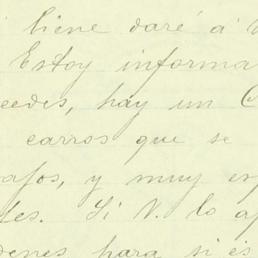 tiene daré á V
Estoy informa
cedes, hay un C
carros que se
ajos, y muy esp
les. Si V. lo ap
denes para si és